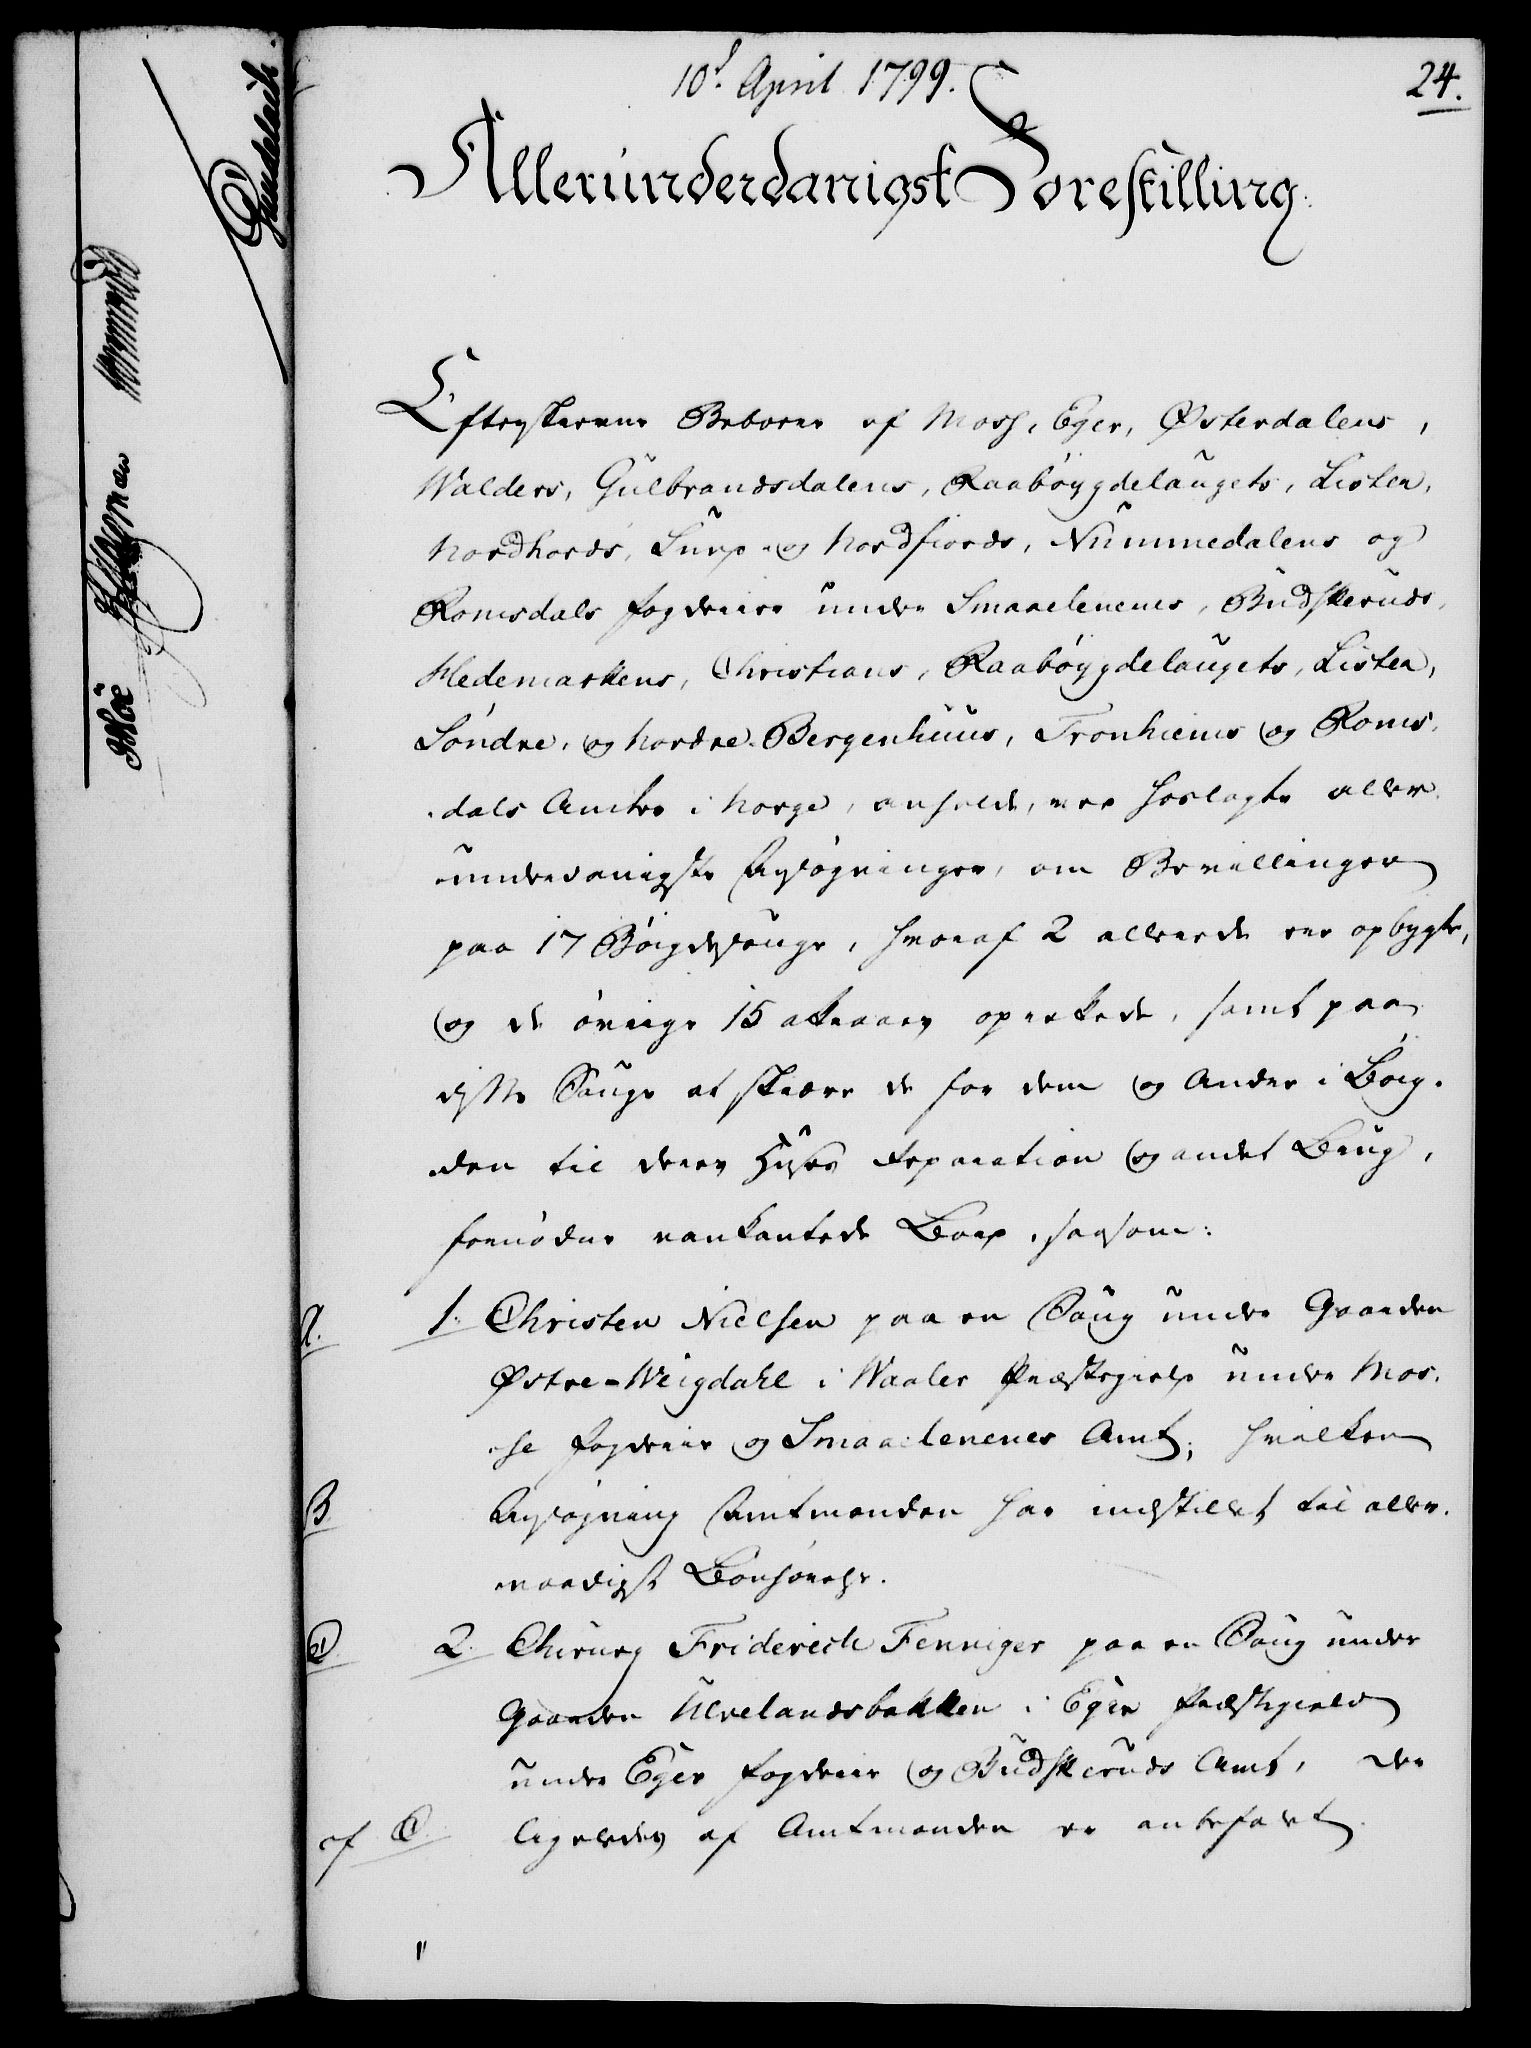 10d April 1799.
24.
Allerunderdanigst Forestilling.
Efterskrevne Beboere af Moss, Eger, Østerdalens,
Walders, Gulbrandsdalens, Raabøygdelaugets, Listen,
Nordhords, Sund- og Nordfiords, Nummedalens og
Romsdals Fogderier under Smaalenenes, Budskeruds,
Hedemarkens, Christians, Raabøygdelaugets, Listen,
Søndre- og Nordre-Bergenhuus, Tronhiems og Roms-
dals Amter i Norge, anholde, ved hoslagte aller-
underdanigste Ansøgninger, om Bevillinger
paa 17 Bøigdesauge, hvoraf 2 allerede ere opbygte,
og de øvrige 15 agtes opsatte, samt paa
disse Sauge at skiære de for dem og Andre i Bøig-
den til deres Huses Reparation og andet Brug,
fornødne vankantede Bord, saasom:
A.
1. Christen Nielsen paa en Saug under Gaarden
Østre-Weigdahl i Waaler Præstegield under Mos-
se Fogderie og Smaalenenes Amt; hvilken
B
Ansøgning Amtmanden har indstillet til aller-
naadigst Bønhørelse.
C.
2. Chirurg Friderich Fenniger paa en Saug under
Gaarden Ulvelandsbakken i Eger Præstegield
under Eger Fogderie og Budskeruds Amt, der
af C.
ligeledes af Amtmanden er anbefalet.